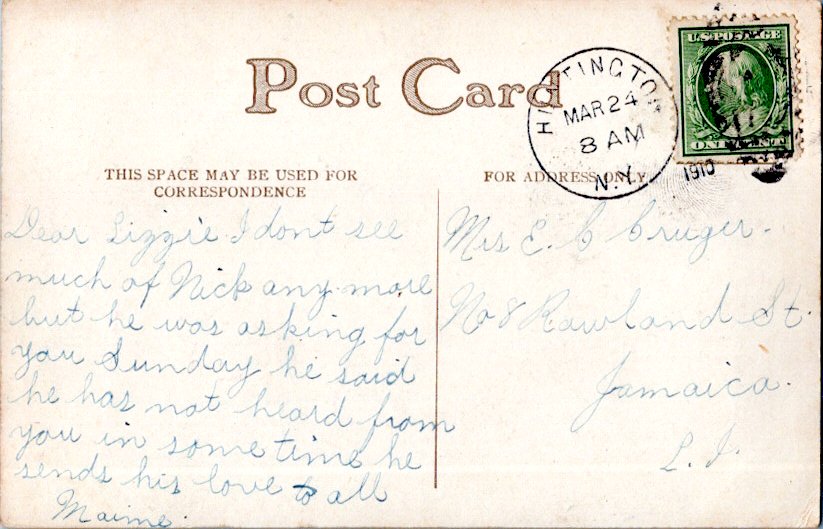 Post Card
U.S. POSTAGE
ONE CENT
HUNTINGTON
MAR 24
8 AM
N.Y.
1910
THIS SPACE MAY BE USED FOR
CORRESPONDENCE
FOR ADDRESS ONLY
Dear Lizzie I dont see
much of Nick any more
but he was asking for
you Sunday he said
he has not heard from
you in some time he
sends his love to all
Maime.
Mrs E. C Cruger.
No 8 Rawland St.
Jamaica.
L. I.